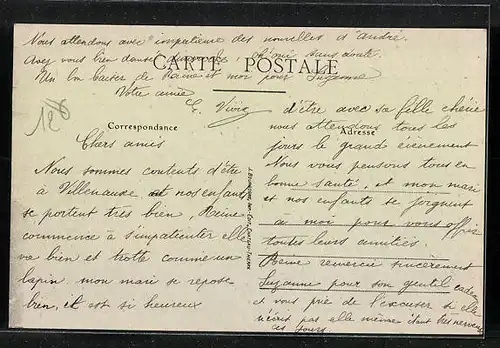 Nous attendons avec impatience des nouvelles d'André
Avez vous bien dansé dimanche sans doute.
CARTE POSTALE
Un bon baiser de Reine et moi pour Suzanne
Votre amie
Correspondance
Chers amis
Nous sommes contents d'être
à Villenauxe, nos enfants
se portent très bien, Reine
commence à s'impatienter elle
va bien et trotte comme un
lapin. mon mari se repose
bien, et est si heureux
d'être avec sa fille chérie
nous attendons tous les
Adresse
jours le grand évènement
Nous vous pensons tous en
bonne santé, et mon mari
et nos enfants se joignent
à moi pour vous offrir
toutes leurs amitiés.
Reine remercie sincèrement
Suzanne pour son gentil cadeau
et vous prie de l'excuser si elle
n'écrit pas elle même étant très nerveuse
ces jours.